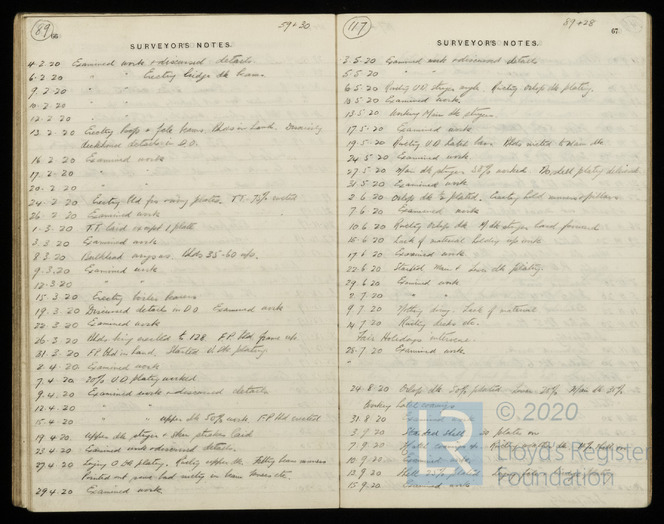 89
66
59+30
SURVEYOR'S NOTES.
4.2.20 Examined work & discussed details
6.2.20 " " Erecting bridge dk beams.
9.2.20 " "
10.2.20 " "
12.2.20 " "
13.2.20 Erecting poop & fo'le beams. Blkds in hand. Discussing
deckhouse details in D.O.
16.2.20 Examined work
17.2.20 " "
20.2.20 " "
24.2.20 T.T. 70% riveted
26.2.20 Examined work
1.3.20 T.T. laid except 1 plate
3.3.20 Examined work
8.3.20 Bulkhead 35-60 up.
9.3.20 Examined work
12.3.20 " "
15.3.20 Erecting boiler bearers
19.3.20 Discussed details in D.O. Examined work
22.3.20 Examined work
26.3.20 Blkds being erected to 128. F.P. Blkd frans up
31.3.20 F.P. Blkd in hand. Started U. Dk plating
2.4.20 Examined work
7.4.20 20% U.D plating worked
9.4.20 Examined work & discussed details
12.4.20 " "
15.4.20 " " upper dk 50% work. F.P. Blkd riveted
19.4.20 Upper dk stringer & shr strakes laid
23.4.20 Examined work & discussed details.
27.4.20 Laying O. Dk plating. Riveting upper dk. Fitting beam
Pointed out some bad riveting in beam knees etc.
29.4.20 Examined work
117
89+28
67
SURVEYOR'S NOTES.
3.5.20 Examined work & discussed details
5.5.20 " "
6.5.20 Riveting U.D. stringer angle. Riveting Orlop dk plating.
10.5.20 Examined work.
13.5.20 Working Main dk stringers
17.5.20 Examined work
19.5.20 Riveting U.D hatch Blkds riveted to Main dk
24.5.20 Examined work
27.5.20 Main dk stringer 30% worked. Bo. shell plating delivered
31.5.20 Examined work
2.6.20 Orlop dk plated. Erecting hold
7.6.20 Examined work
10.6.20 Riveting Orlop dk. M. dk stringer laid forward
15.6.20 Lack of material holding up work
17.6.20 Examined work.
22.6.20 Started Main & Lower dk plating.
29.6.20 Examined work
2.7.20 " "
9.7.20 Nothing doing. Lack of material
14.7.20 Riveting decks etc.
Fair Holidays intervene.
28.7.20 Examined work.
"
24.8.20 Orlop dk 50% plated. Lower 20% Main dk 35%
Working hatch coamings
31.8.20 Examined
3.9.20 Started Shell. 20 plates on
7.9.20
10.9.20 Examined
13.9.20 Shell plated
15.9.20 Examined work
LR
© 2020
Lloyd's Register
Foundation